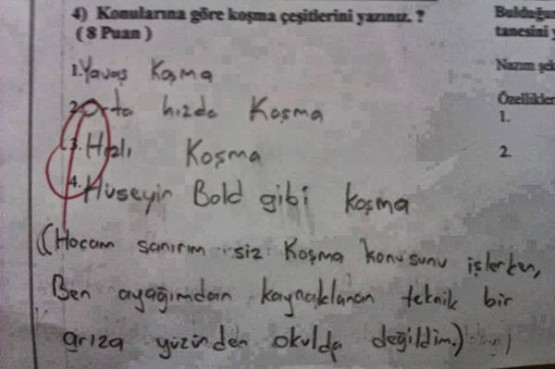 4) Konularına göre koşma çeşitlerini yazınız. ?
( 8 Puan )
1. Yavaş Koşma
2. Orta hızda Koşma
3. Hızlı Koşma
4. Hüseyin Bold gibi koşma
(Hocam sanırım siz Koşma konusunu işlerken,
Ben ayağımdan kaynaklanan teknik bir
arıza yüzünden okulda değildim.)
tanesini
Nazım şek
Özellikler
1.
2.